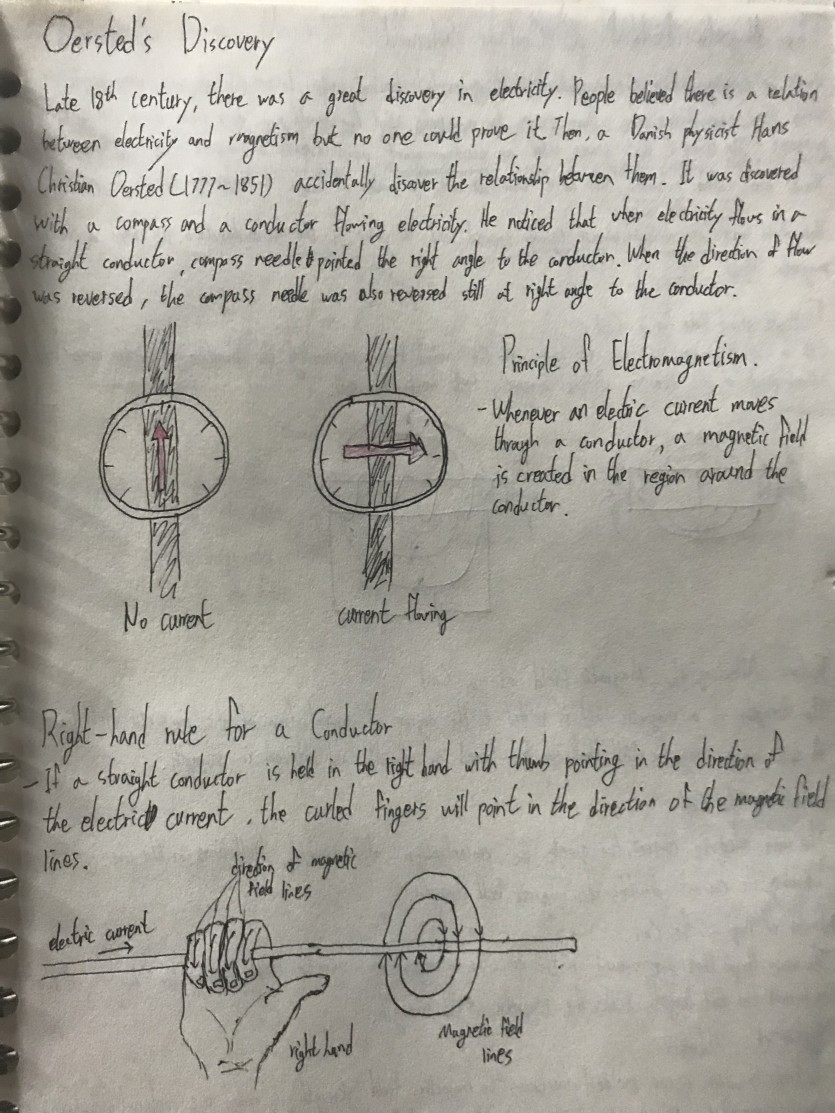 Oersted's Discovery
Late 18th century, there was a great discovery in electricity. People believed there is a relation
between electricity and magnetism but no one could prove it. Then, a Danish physicist Hans
Christian Oersted (1777~1851) accidentally discover the relationship between them. It was discovered
with a compass and a conductor flowing electricity. He noticed that when electricity flows in a
straight conductor, compass needle pointed the right angle to the conductor. When the direction of flow
was reversed, the compass needle was also reversed still at right angle to the conductor.
Principle of Electromagnetism.
- Whenever an electric current moves
through a conductor, a magnetic field
is created in the region around the
conductor.
No current
current flowing
Right-hand rule for a Conductor
- If a straight conductor is held in the right hand with thumb pointing in the direction of
the electric current, the curled fingers will point in the direction of the magnetic field
lines.
direction of magnetic
field lines
electric current
right hand
Magnetic field
lines